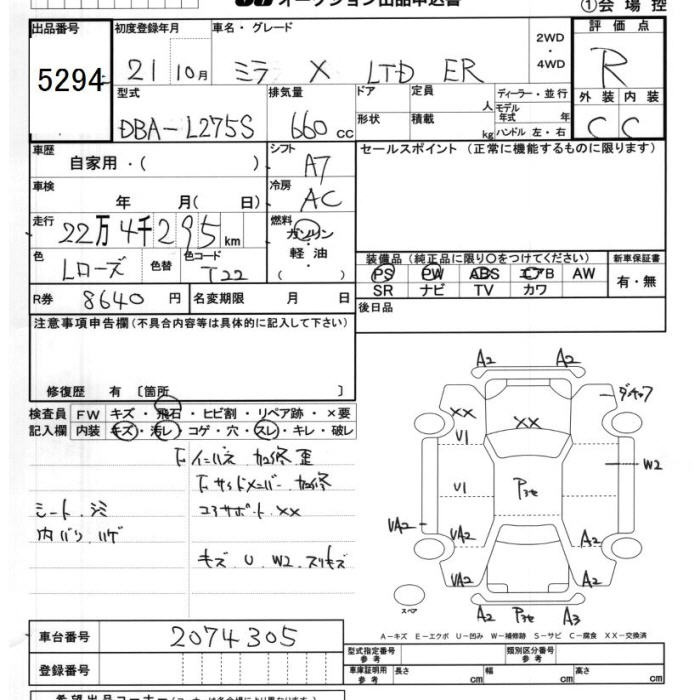 オークション出品申込書 ①会場控
出品番号 初度登録年月 車名・グレード 2WD・4WD 評価点
5294 21 10月 ミラ X LTD ER R
型式 排気量 ドア 定員 人 ディーラー・並行 外装 内装
DBA-L275S 660cc 形状 積載 kg モデル年式 年 ハンドル 左・右 C C
車歴 自家用・( ) シフト A7 セールスポイント(正常に機能するものに限ります)
車検 年 月( 日) 冷房 AC
走行 22万4千295km 燃料 ガソリン・軽油・( )
色 Lローズ 色替 色コード T22
装備品(純正品に限り〇をつけてください) 新車保証書
PS PW ABS エアB AW 有・無
SR ナビ TV カワ
R券 8640円 名変期限 月 日 後日品
注意事項申告欄(不具合内容等は具体的に記入して下さい)
修復歴 有〔箇所 〕
検査員 FW キズ・飛石・ヒビ割・リペア跡・×要
記入欄 内装 キズ・汚レ・コゲ・穴・スレ・キレ・破レ
F インパネ 加修 歪
F サイドメンバー 加修
シート シミ コアサポート XX
内バリ ハゲ
キズ U W2 スリキズ
A2 A2
XX XX ダキャフ
U1
W2
U1
UA2 UA2 A2
UA2 A2
スペア A2 A3
A-キズ E-エクボ U-凹み W-補修跡 S-サビ C-腐食 XX-交換済
車台番号 2074305
登録番号
型式指定番号 参考 類別区分番号 参考
車庫証明用 参考 長さ cm 幅 cm 高さ cm
希望出品コーナー